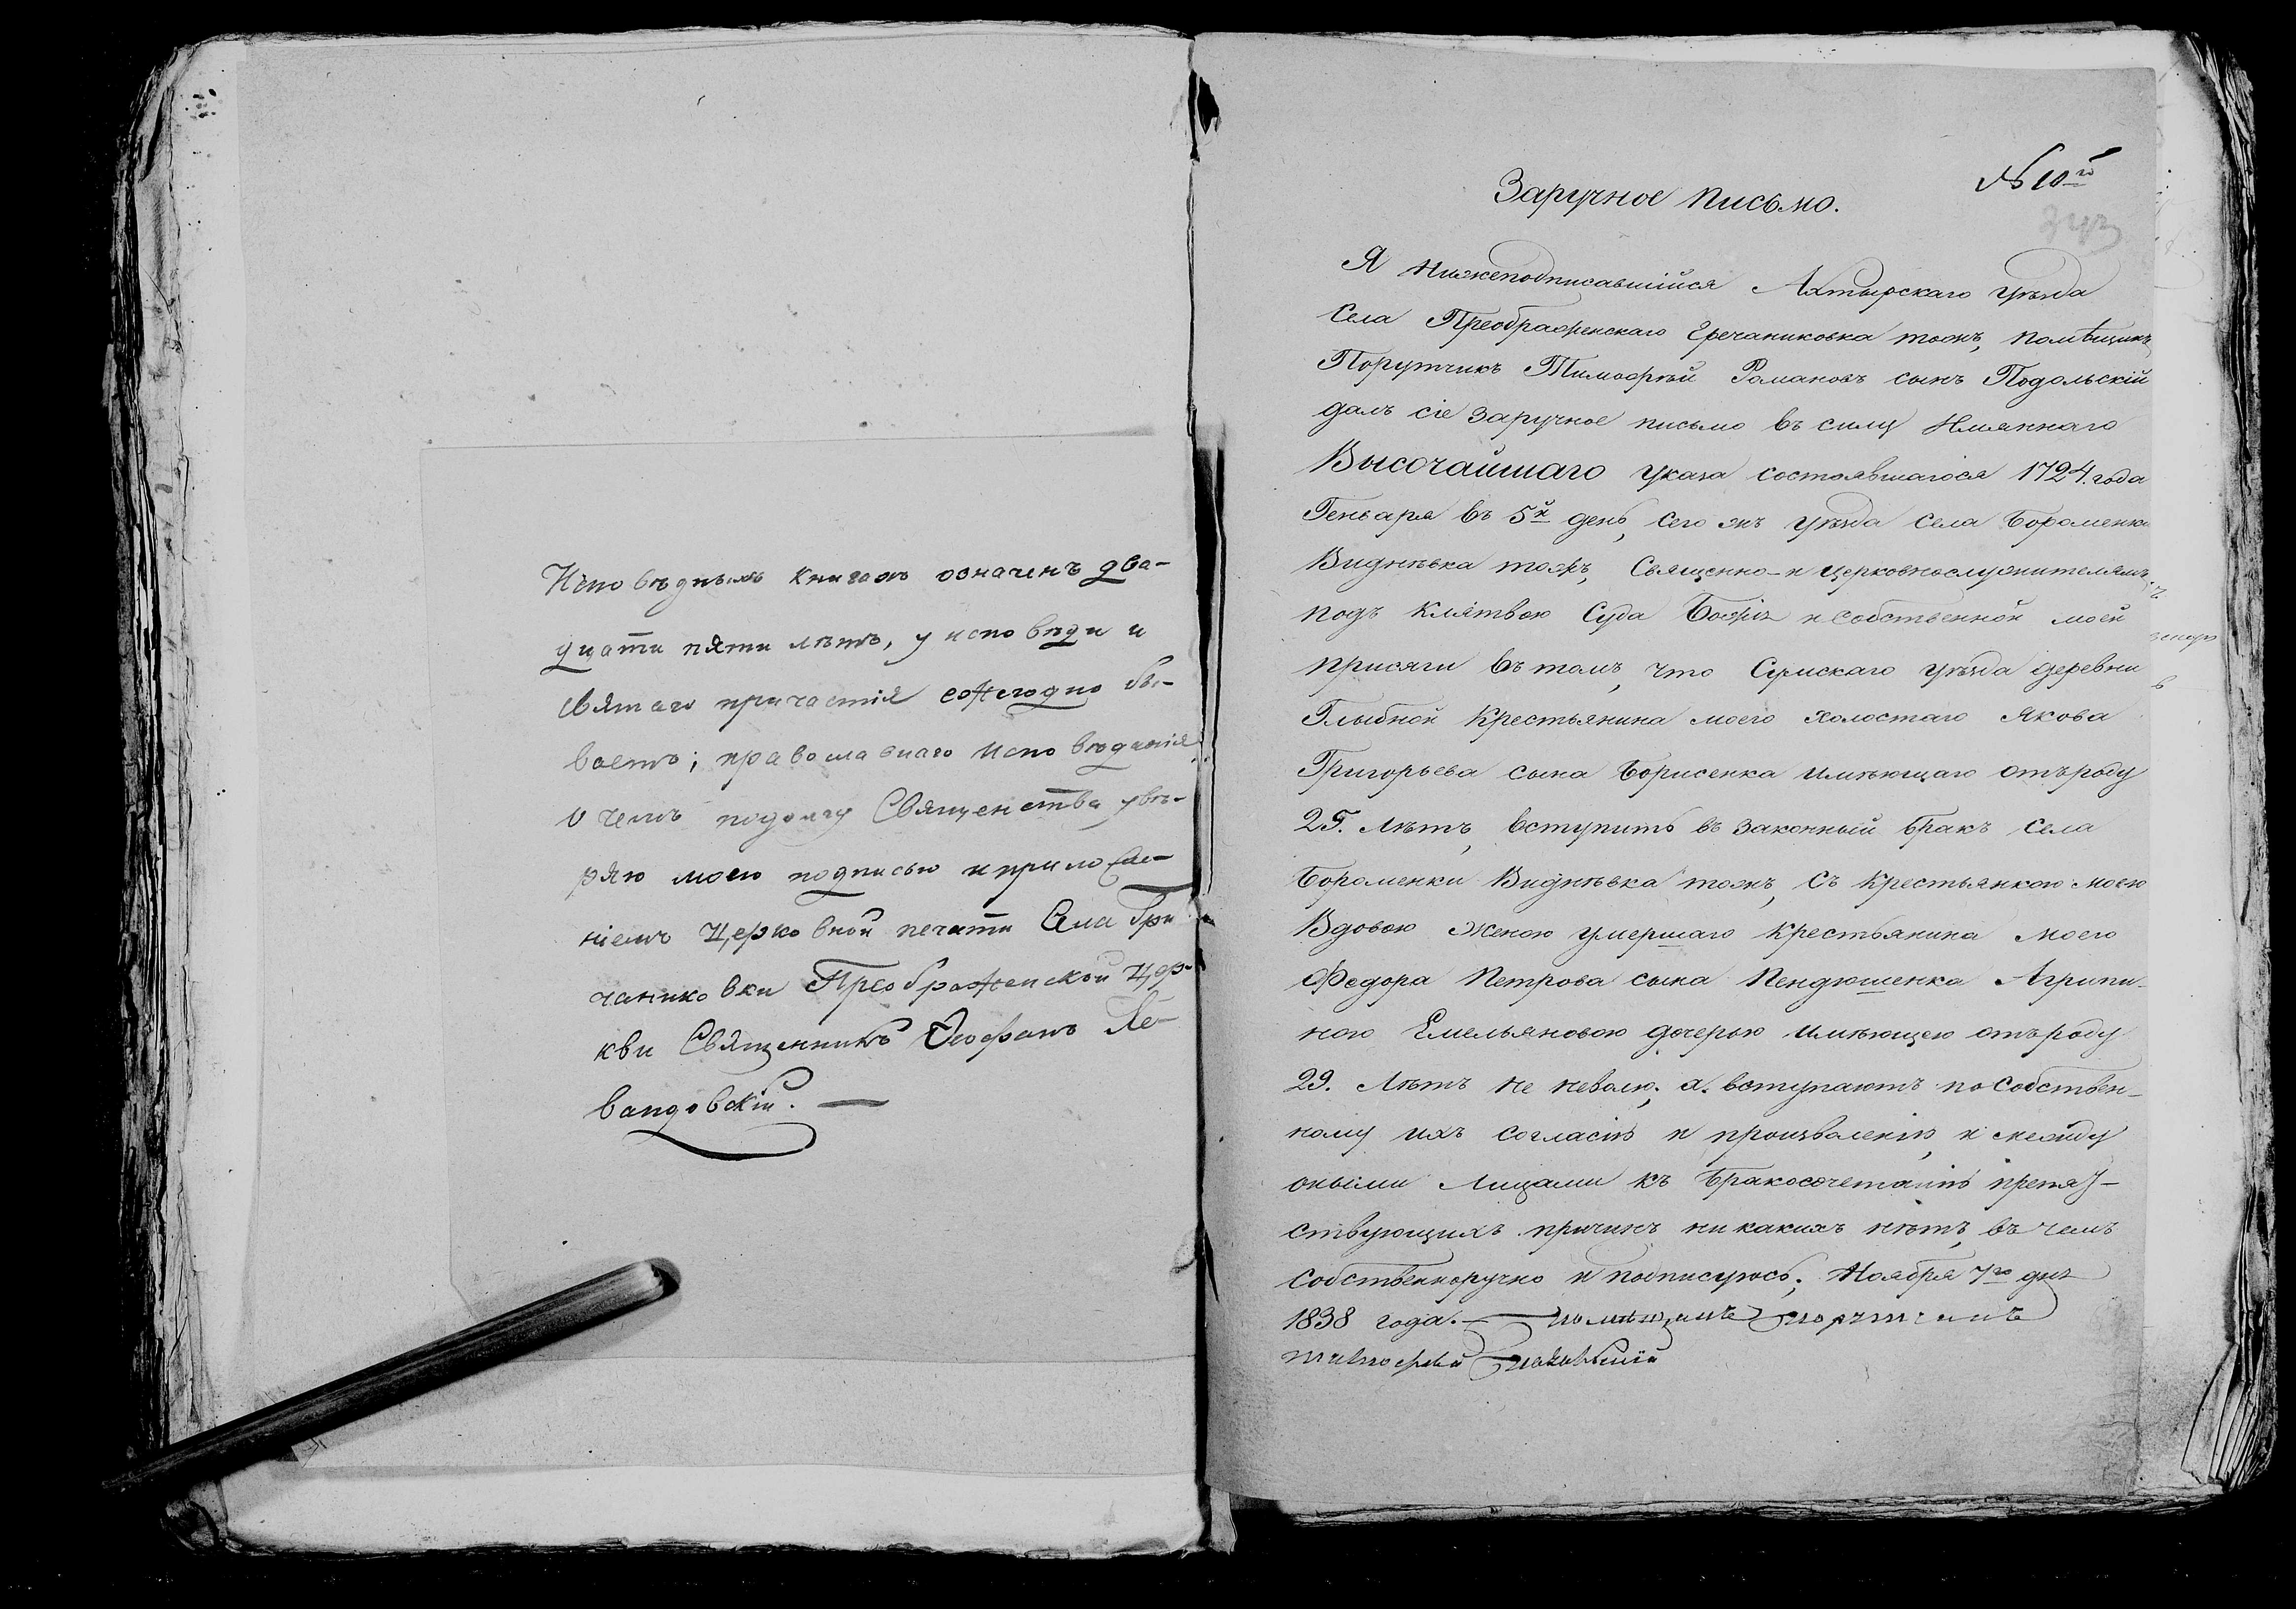 Исповѣднымъ книгамъ означенъ два-
дцати пяти лѣтъ, у исповѣди и
святаго причастія ежегодно бы-
ваетъ; православнаго исповѣданія
о чемъ подолгу Священства увѣ-
ряю моею подписью и приложе-
ніемъ Церковной печати Села Гри
чаниковки Преображенской Цер-
кви Священникъ Ѳеофанъ Ле-
вандовскій. —
№ 10й
Заручное письмо.
Я нижеподписавшійся Ахтырскаго уѣзда
Села Преображенскаго Гречаниковка тожъ, помѣщикъ
Порутчикъ Тимофѣй Романовъ сынъ Подольскій
далъ сіе заручное письмо въ силу Имяннаго
Высочайшаго указа состоявшагося 1724. года
Генваря въ 5й день, сего жъ уѣзда села Бороменки
Виднѣвка тожъ, Священно-и церковнослужителямъ,
подъ клятвою Суда Божія и собственной моей
присяги въ томъ, что Сумскаго уѣзда деревни
Глыбной крестьянина моего холостаго Якова
Григорьева сына Борисенка имѣющаго отъ роду
25. лѣтъ, вступить въ законный бракъ села
Бороменки Виднѣвка тожъ, съ крестьянкою моею
Вдовою женою умершаго крестьянина моего
Федора Петрова сына Пендюшенка Агрипи-
ною Емельяновою дочерью имѣющею отъ роду
29. лѣтъ не неволю; а вступаютъ по собствен-
ному ихъ согласію и произволенію, и между
оными лицами къ бракосочетанію препят-
ствующихъ причинъ ни какихъ нѣтъ, въ чемъ
собственноручно и подписуюсь; Ноября 7го дня
1838 года. помѣщикъ порутчикъ
тимофѣй подольскій